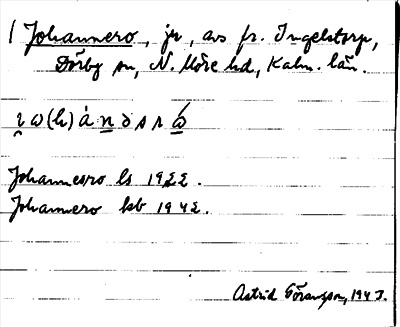 / Johannero, jr, avs fr. Ingelstorp,
Dörby sn, N. Möre hd, Kalm. län.
Johannesro ls 1922.
Johannero hb 1942.
Astrid Göransson, 1943.